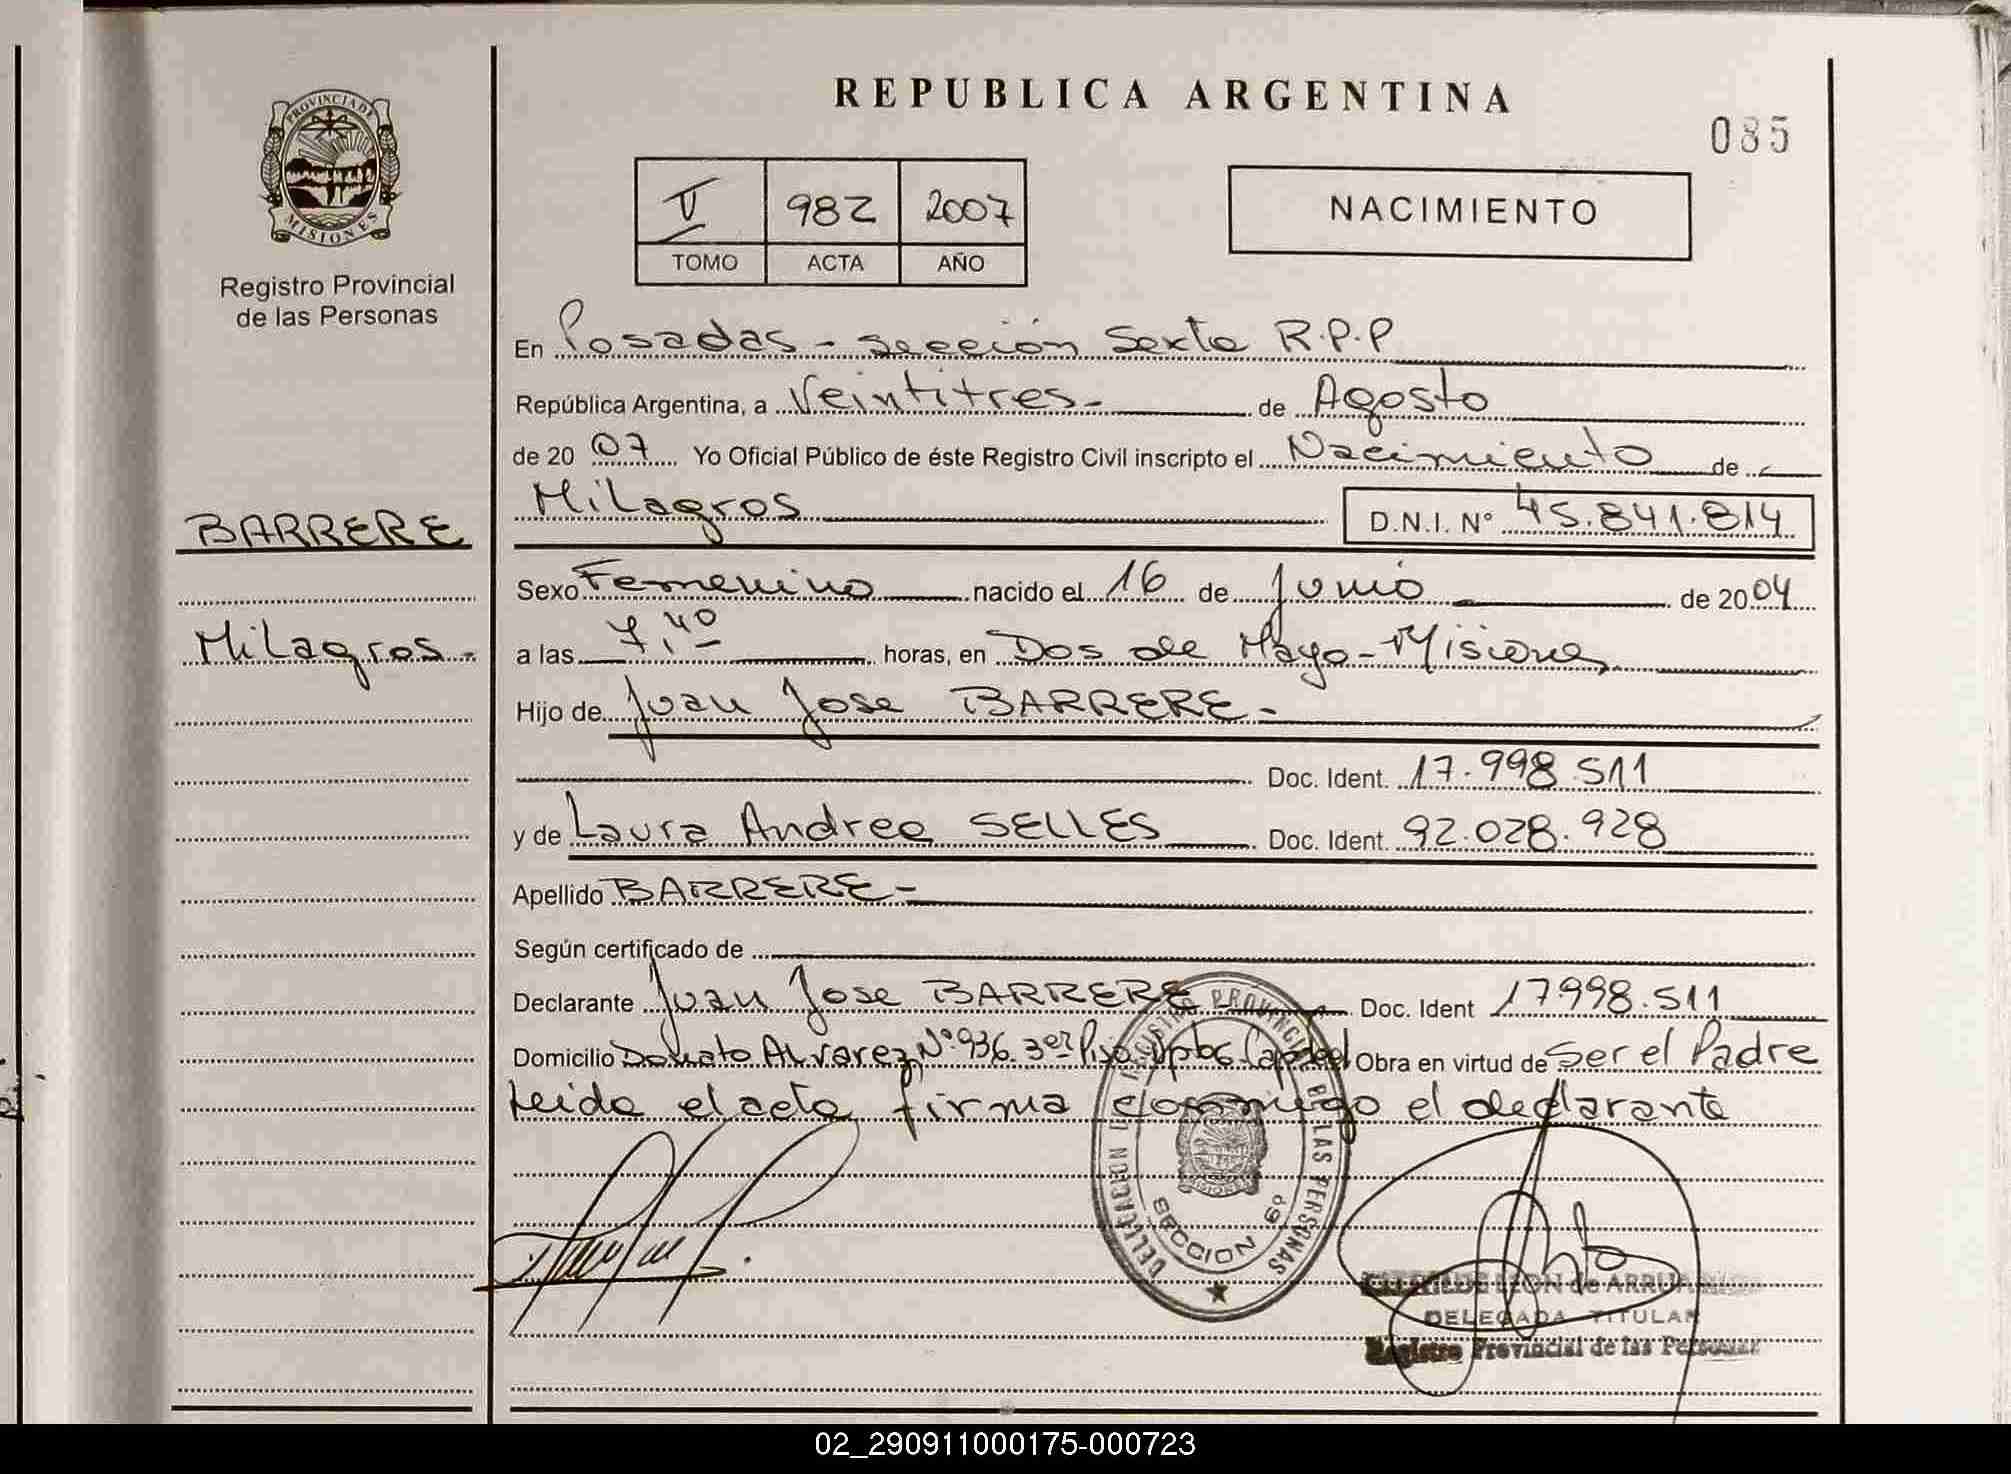 REPUBLICA ARGENTINA
085
PROVINCIA DE
MISIONES
Registro Provincial
de las Personas
V 982 2007
TOMO ACTA AÑO
NACIMIENTO
En Posadas - sección Sexta R.P.P
República Argentina, a Veintitres - de Agosto
de 20 07 Yo Oficial Público de éste Registro Civil inscripto el Nacimiento de
Milagros D.N.I. N° 45.841.814
BARRERE
Sexo Femenino nacido el 16 de Junio de 2004
Milagros -
a las 7,40 horas, en Dos de Mayo - Misiones
Hijo de Juan Jose BARRERE -
Doc. Ident. 17.998.511
y de Laura Andrea SELLES Doc. Ident. 92.028.928
Apellido BARRERE -
Según certificado de
Declarante Juan Jose BARRERE Doc. Ident 17998.511
Domicilio Donato Alvarez N° 936 3er Piso Obra en virtud de Ser el Padre
Leida el acta firma conmigo el declarante
DELEGACION REGISTRO PROVINCIAL DE LAS PERSONAS
SECCION 6º
MISIONES
LEON de
DELEGADA TITULAR
Registro Provincial de las Personas
02_290911000175-000723